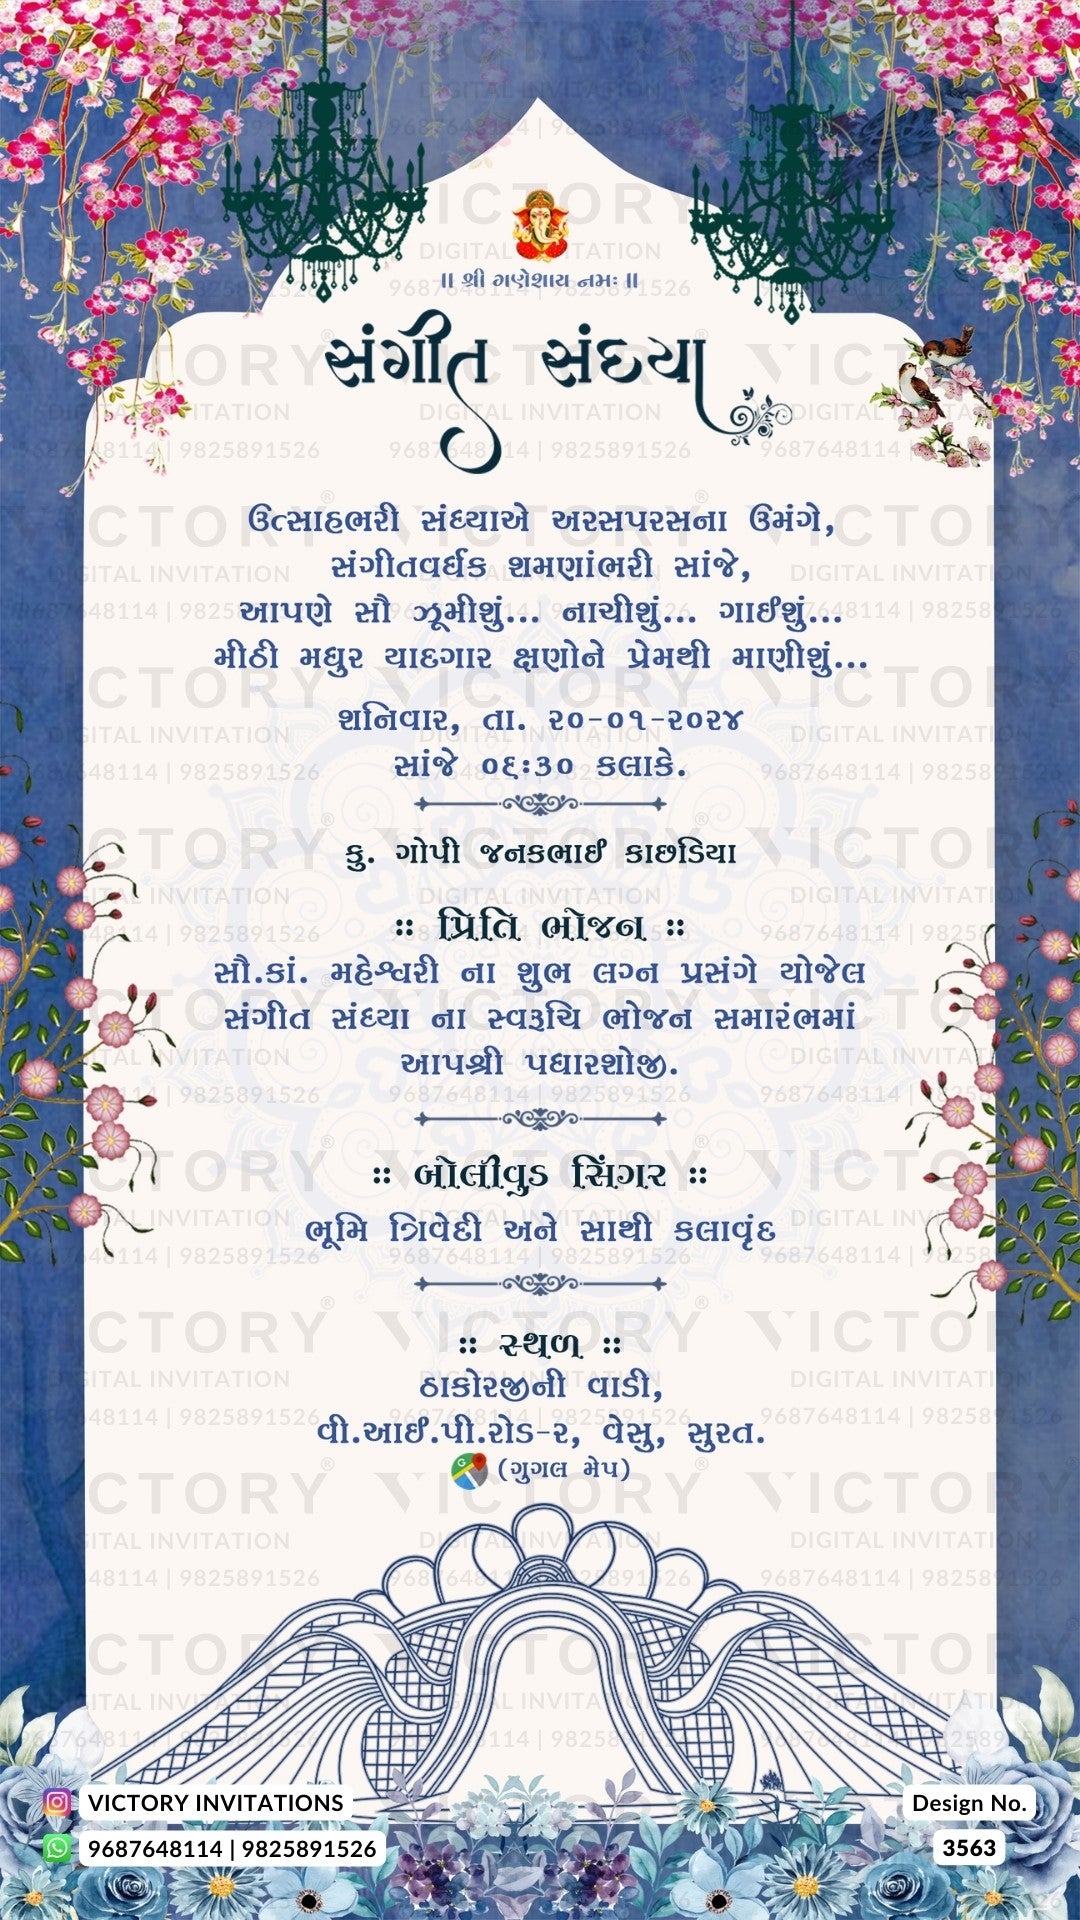 ॥ શ્રી ગણેશાય નમઃ ॥
સંગીત સંધ્યા
ઉત્સાહભરી સંધ્યાએ અરસપરસના ઉમંગે,
સંગીતવર્ધક શમણાંભરી સાંજે,
આપણે સૌ ઝૂમીશું... નાચીશું... ગાઈશું...
મીઠી મધુર યાદગાર ક્ષણોને પ્રેમથી માણીશું...
શનિવાર, તા. ૨૦-૦૧-૨૦૨૪
સાંજે ૦૬:૩૦ કલાકે.
કુ. ગોપી જનકભાઈ કાછડિયા
:: પ્રિતિ ભોજન ::
સૌ.કાં. મહેશ્વરી ના શુભ લગ્ન પ્રસંગે યોજેલ
સંગીત સંધ્યા ના સ્વરૂચિ ભોજન સમારંભમાં
આપશ્રી પધારશોજી.
:: બોલીવુડ સિંગર ::
ભૂમિ ત્રિવેદી અને સાથી કલાવૃંદ
:: સ્થળ ::
ઠાકોરજીની વાડી,
વી.આઈ.પી.રોડ-૨, વેસુ, સુરત.
(ગુગલ મેપ)
VICTORY INVITATIONS
9687648114 | 9825891526
Design No.
3563
VICTORY
DIGITAL INVITATION
9687648114 | 9825891526